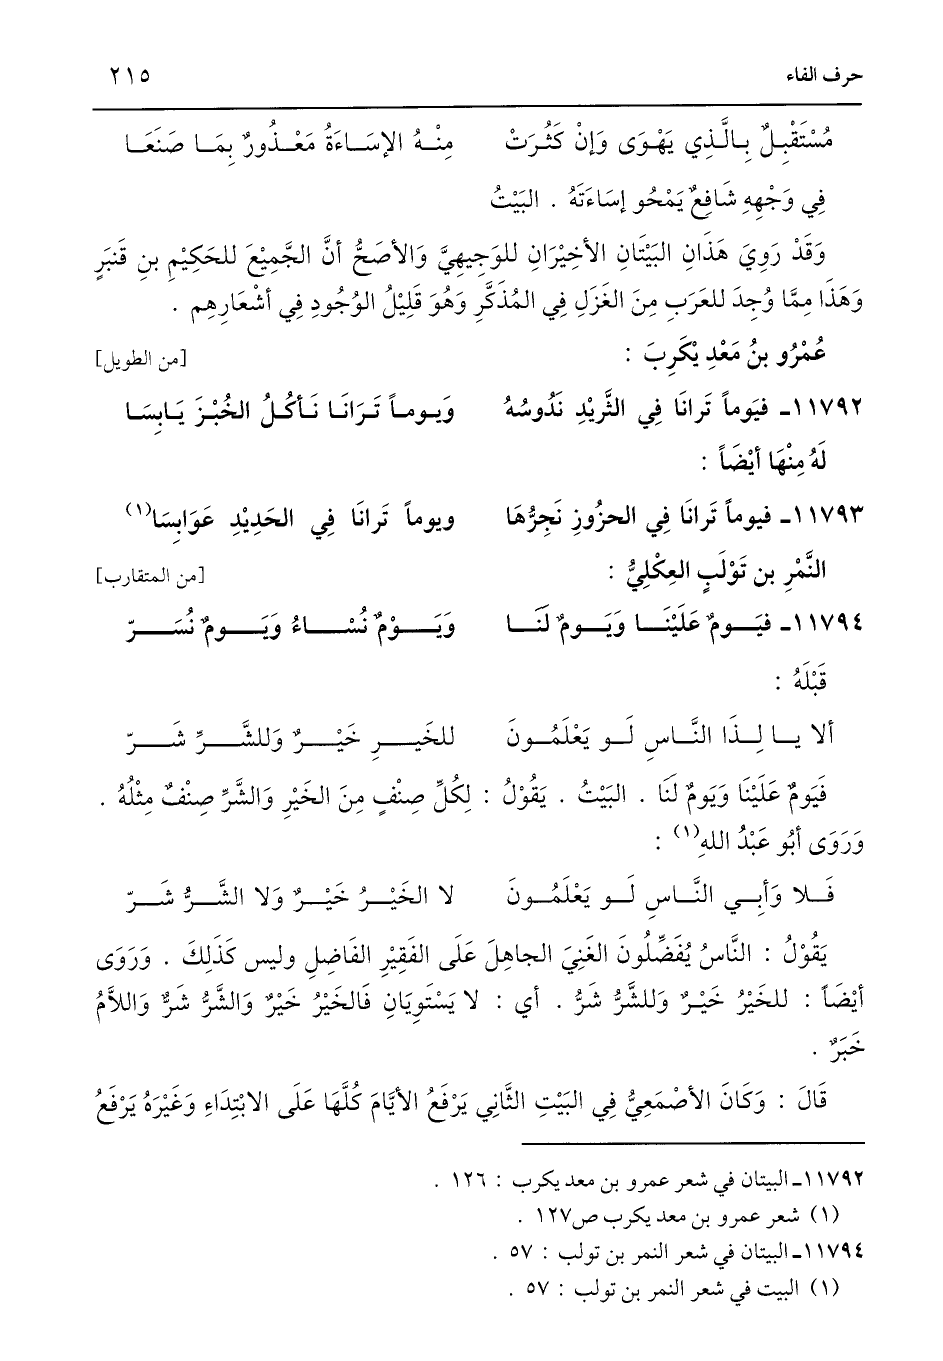 حرف الفاء ٢١٥
مُسْتَقْبِلٌ بِالَّذِي يَهْوَى وَإِنْ كَثُرَتْ مِنْهُ الإسَاءَةُ مَعْذُورٌ بِمَا صَنَعَا
فِي وَجْهِهِ شَافِعٌ يَمْحُو إسَاءَتَهُ . البَيْتُ
وَقَدْ رَوِيَ هَذَانِ البَيْتَانِ الأخِيْرَانِ للوَجِيهِيَّ وَالأصَحُّ أنَّ الجَّمِيْعَ للحَكِيْمِ بنِ قَنبَرٍ
وَهَذَا مِمَّا وُجِدَ للعَرَبِ مِنَ الغَزَلِ فِي المُذَكَّرِ وَهُوَ قَلِيْلُ الوُجُودِ فِي أشْعَارِهِم .
عُمْرُو بنُ مَعْدِ يْكَرِبَ : [من الطويل]
١١٧٩٢ـ فيَوماً تَرانَا فِي الثَّرِيْدِ نَدُوسُهُ وَيوماً تَرَانَا نَأكُلُ الخُبْزَ يَابِسَا
لَهُ مِنْهَا أيْضَاً :
١١٧٩٣ـ فيوماً تَرانَا فِي الحزُوزِ نَجِرُّهَا ويوماً تَرانَا فِي الحَدِيْدِ عَوَابِسَا(١)
النَّمْرِ بن تَوْلَبٍ العِكْلِيُّ : [من المتقارب]
١١٧٩٤ـ فيَومٌ عَلَيْنَا وَيَومٌ لَنَا وَيَوْمٌ نُسْاءُ وَيَومٌ نُسَرّ
قَبْلَهُ :
ألا يا لِذَا النَّاسِ لَو يَعْلَمُونَ للخَيرِ خَيْرٌ وَللشَّرِّ شَرّ
فَيَومٌ عَلَيْنَا وَيَومٌ لَنَا . البَيْتُ . يَقُوْلُ : لِكُلِّ صِنْفٍ مِنَ الخَيْرِ وَالشَّرِّ صِنْفٌ مِثْلُهُ .
وَرَوَى أبُو عَبْدُ اللهِ(١) :
فَلا وَأبِي النَّاسِ لَو يَعْلَمُونَ لا الخَيْرُ خَيْرٌ وَلا الشَّرُّ شَرّ
يَقُوْلُ : النَّاسُ يُفَضِّلُونَ الغَنِيَ الجاهِلَ عَلَى الفَقِيْرِ الفَاضِلِ وليس كَذَلِكَ . وَرَوَى
أيْضَاً : للخَيْرُ خَيْرٌ وَللشَّرُّ شَرُّ . أي : لا يَسْتَوِيَانِ فَالخَيْرُ خَيْرٌ وَالشَّرُّ شَرٌّ وَاللاَّمُ
خَبَرٌ .
قَالَ : وَكَانَ الأصْمَعِيُّ فِي البَيْتِ الثَّانِي يَرْفَعُ الأيَّامَ كُلَّهَا عَلَى الابْتِدَاءِ وَغَيْرَهُ يَرْفَعُ
١١٧٩٢ـ البيتان في شعر عمرو بن معد يكرب : ١٢٦ .
(١) شعر عمرو بن معد يكرب ص١٢٧ .
١١٧٩٤ـ البيتان في شعر النمر بن تولب : ٥٧ .
(١) البيت في شعر النمر بن تولب : ٥٧ .